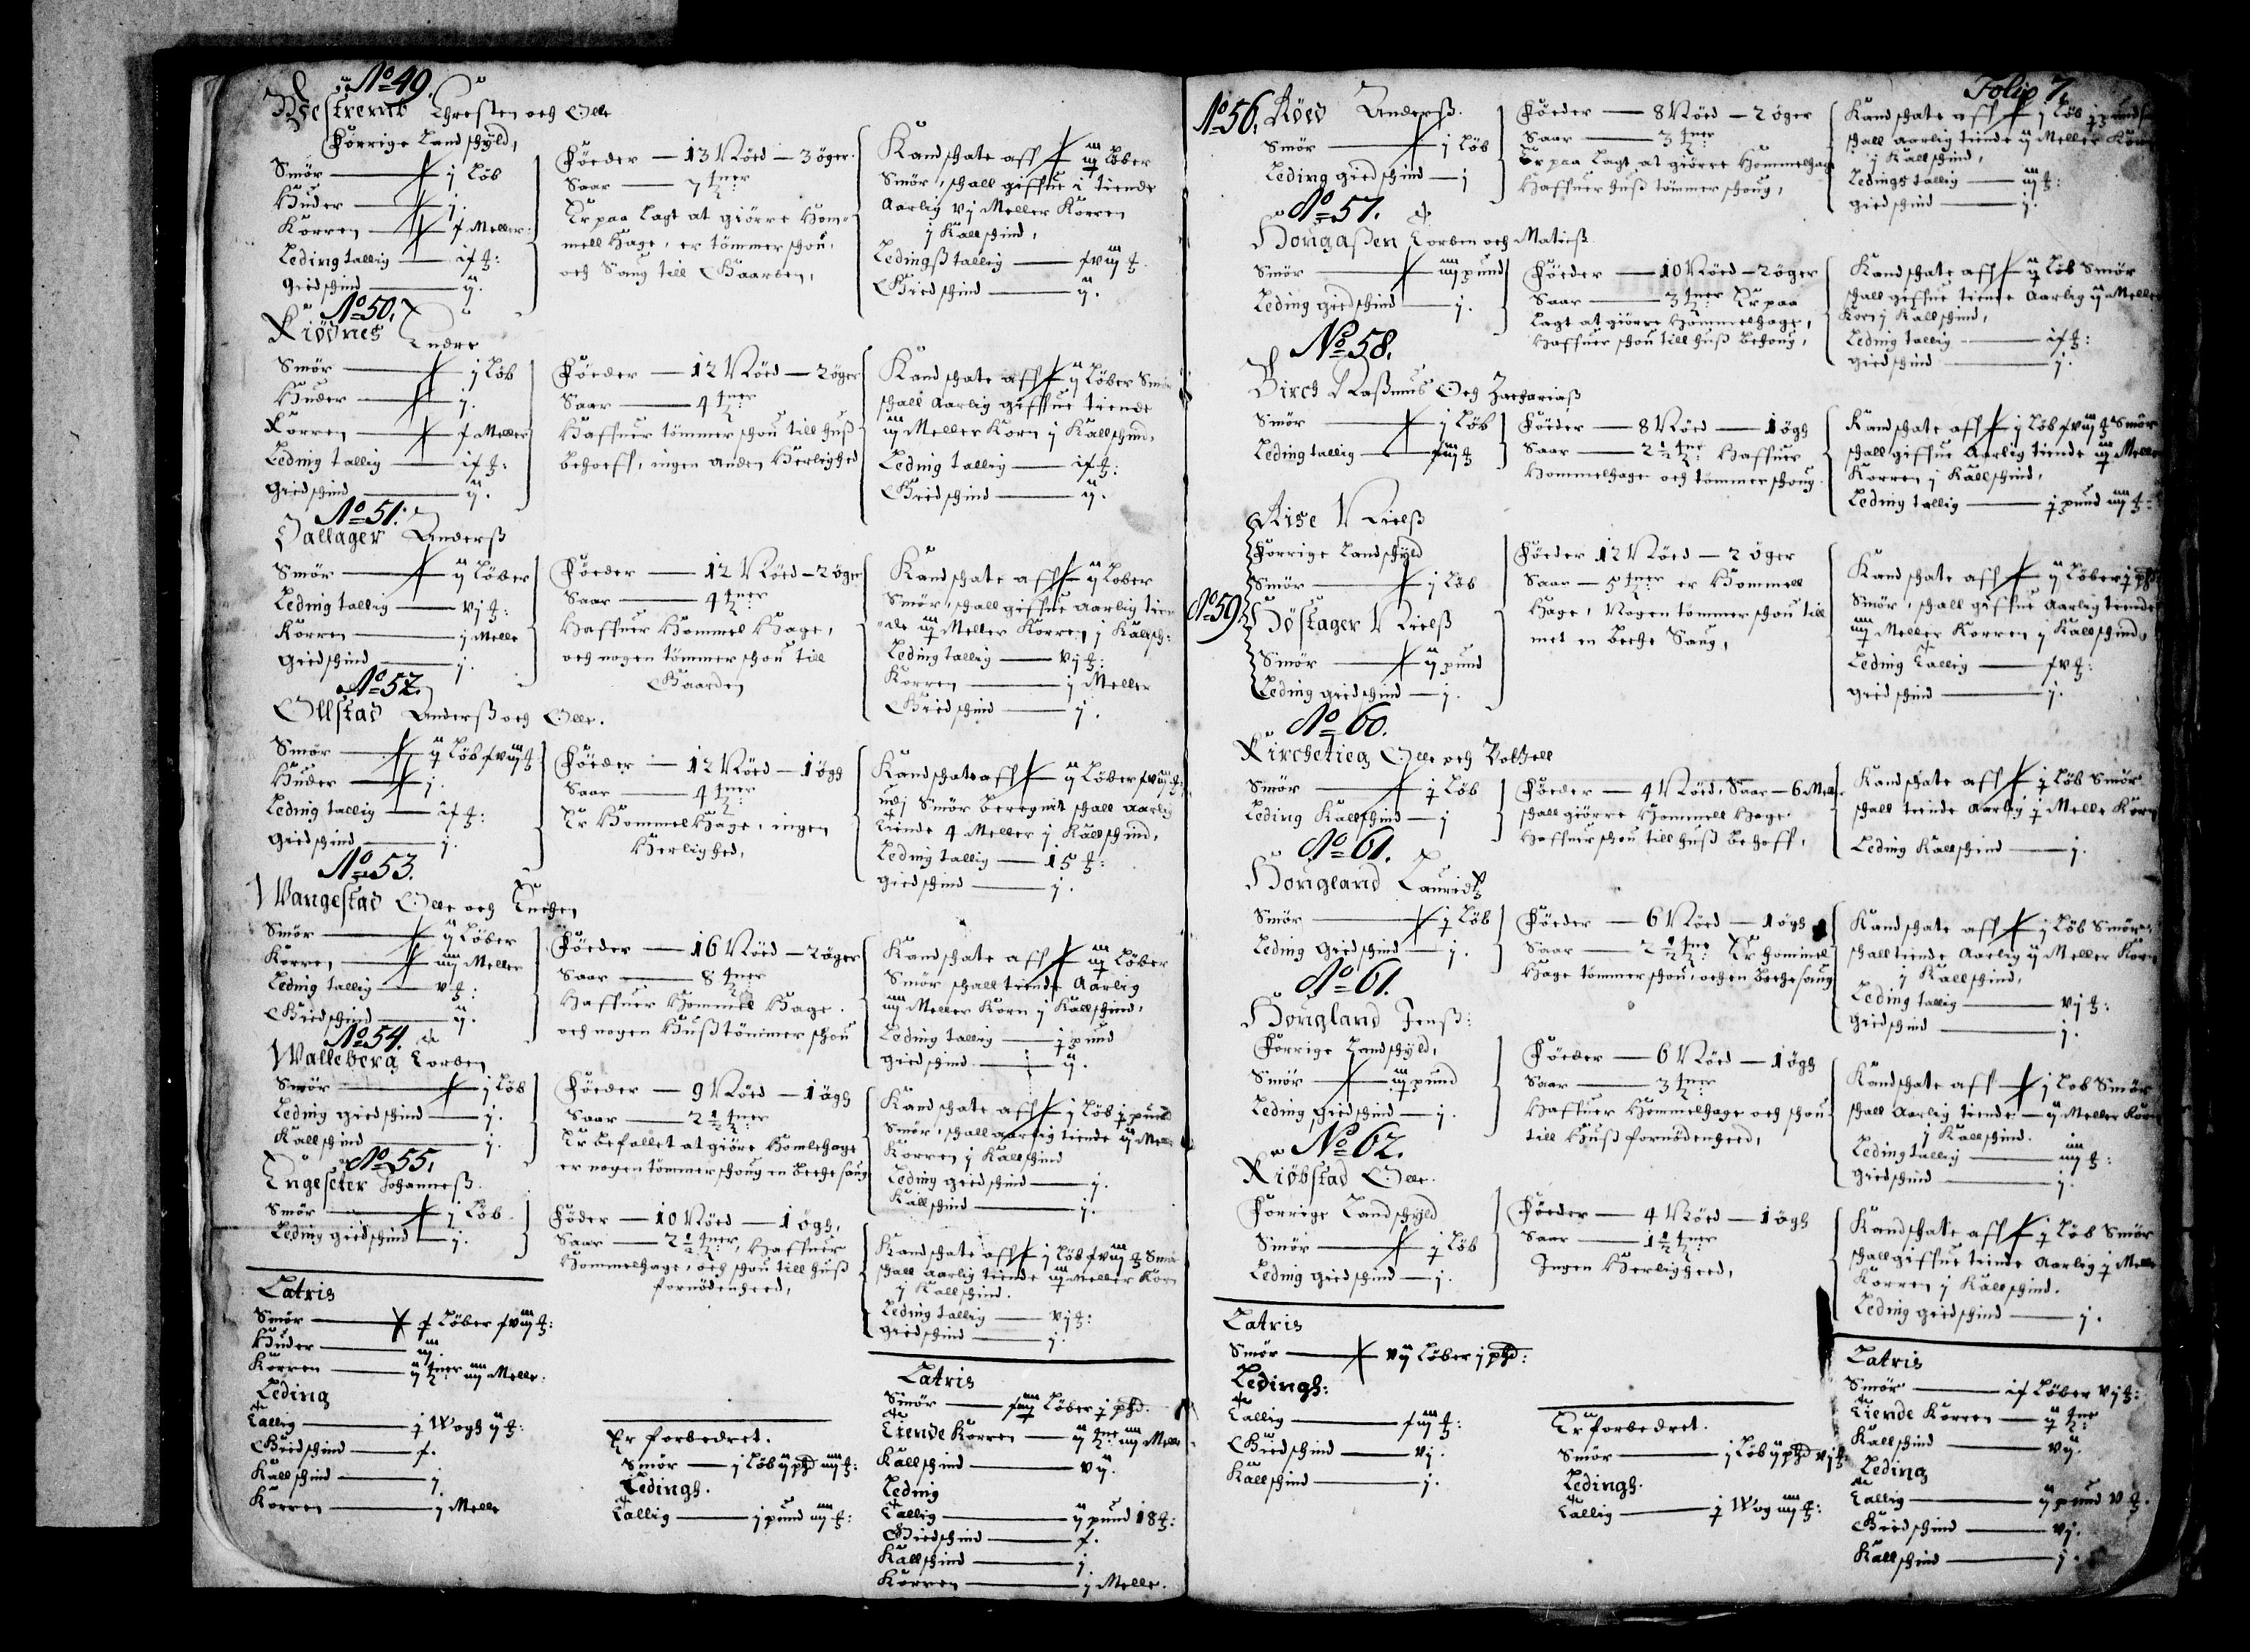 No 49.
Westremb Christen och Olle
Förrige Landschyld,
Smör — j Löb
Huder — j.
Korren — f Meller:
Leding tallig — if ℔:
Giedschind — ij.
Föeder — 13 Nöed — 3 öger.
Saar — 7 tner
Er paa lagt at giörre Hom-
mell Hage, er tömmer schou,
och Saug till Gaarden,
Kand schate aff — iij Löber
Smör, schall giffue i tiende
Aarlig vj Meller Korren
j Kallschind,
Ledingß tallig — fviij ℔.
Giedschind — ij.
No 50.
Kiödnes Endre
Smör — j Löb
Huder — j.
Korren — f Meller
Leding tallig — if ℔:
Giedschind — ij.
Föeder — 12 Nöed — 2 öger
Saar — 4 tner
Haffuer tömmer schou till huß
behoeff, ingen anden Herlighed
Kand schate aff — ij Löber Smör
schall Aarlig giffue tiende
iiij Meller Korn j Kallschind,
Leding tallig — if ℔:
Giedschind — ij.
No 51.
Hallager Anderß
Smör — ij Löber
Leding tallig — vj ℔:
Korren — j Melle
Giedschind — j.
Föeder — 12 Nöed — 2 öger
Saar — 4 tner
Haffuer Hommel Hage,
och nogen tömmer schou till
Gaarden
Kand schate aff — ij Löber
Smör, schall giffue Aarlig tien-
de iiij Meller Korren j Kallsch:
Leding tallig — vj ℔:
Korren — j Meller
Giedschind — j.
No 52.
Ollstad Anderß och Olle.
Smör — ij Löb fviij ℔
Huder — j.
Leding tallig — if ℔:
Giedschind — j.
Föeder — 12 Nöed — 1 ögh
Saar — 4 tner
Er Hommel Hage, ingen
Herlighed,
Kand schate aff — ij Löber fviij ℔:
udj Smör beregnit schall Aarlig
Tiende 4 Meller j Kallschind,
Leding tallig — 15 ℔:
Giedschind — j.
No 53.
Wangestad Olle och Enchen
Smör — ij Löber
Korren — iiij Meller
Leding tallig — v ℔:
Giedschind — ij.
Föeder — 16 Nöed — 2 öger
Saar — 8 tner
Haffuer Hommel Hage.
och nogen Hußtömmer schou
Kand schate aff — iij Löber
Smör schall tiende Aarlig
iiij Meller Korn j Kallschind,
Leding tallig — j pund
Giedschind — ij.
No 54.
Walleberg Torben
Smör — j Löb
Leding giedschind — j.
Kallschind — j.
Föeder — 9 Nöed — 1 ögh
Saar — 2 1/2 tner
Er befallet at giöre Homlehage
er nogen tömmer schoug en beche saug
Kand schate aff — j Löb j pund
Smör, schall aarlig tiende ij Meller
Korren j Kallschind
Leding giedschind — j.
Kallschind — j.
No 55.
Engeseter Johanneß.
Smör — j Löb
Leding giedschind — j.
Föder — 10 Nöed — 1 ögh,
Saar — 2 1/2 tner, Haffuer
Hommelhage, och schou till huß
fornödenheed,
Kand schate aff — j Löb fviij ℔ Smör
schall Aarlig tiende iij Meller Korn
j Kallschind.
Leding tallig — vj ℔:
Giedschind — j.
Latris
Smör — f Löber fviij ℔:
Huder — iij.
Korren — ij tner iiij Melle.
Leding
Tallig — j Wogh ij ℔:
Giedschind — f.
Kallschind — j
Korren — j Melle
Er forbedret.
Smör — j Löb ij phd iiij ℔:
Ledingh.
Tallig — j pund iiij ℔:
Latris
Smör — fiij Löber j phd.
Tiende Korren — ij tne iiij Melle
Kallschind — vij.
Leding
Tallig — ij pund 18 ℔:
Giedschind — f.
Kallschind — j.
Korren — j Melle.
Folio 7.
No 56. Röed Anderß.
Smör — j Löb
Leding giedschind — j
Föeder — 8 Nöed — 2 öger
Saar — 3 tner
Er paa lagt at giörre Hommelhage
Haffuer huß tömmer schoug,
Kand schate aff — j Löb j pund
schall aarlig tiende ij Meller Korn
j Kallschind,
Ledings tallig — iij ℔:
Giedschind — j.
No 57.
Hougaßen Torben och Matieß.
Smör — iiij pund
Leding giedschind — j.
Föeder — 10 Nöed — 2 öger
Saar — 3 tner Er paa
lagt at giörre Hommelhage,
Haffuer schou till huß behoug,
Kand schate aff — ij Löb Smör
schall giffue tiende Aarlig ij Meller
Korn j Kallschind,
Leding tallig — if ℔:
Giedschind — j.
No 58.
Birch Raßmus Och Zachariaß
Smör — j Löb
Leding tallig — fiij ℔
Föeder — 8 Nöed — 1 ögh
Saar — 2 1/2 tner Haffuer
Hommelhage och tömmer schoug.
Kand schate aff — j Löb fviij ℔ Smör
schall giffue Aarlig tiende iij Meller
Korren j Kallschind,
Leding tallig — j pund iiij ℔:
No 59
Riße Nielß
Forrige Landschyld
Smör — j Löb
Höstager Nielß
Smör — ij pund
Leding giedschind — j.
Föeder 12 Nöed — 2 öger
Saar — 5 tner er Hommell
Hage, Nogen tömmer schou till
met en beche Saug,
Kand schate aff — ij Löber j phd
Smör, schall giffue Aarlig tiende
iiij Meller Korren j Kallschind,
Leding Tallig — fv ℔:
Giedschind — j.
No 60.
Kirchetieg Olle och Bottell
Smör — j Löb
Leding Kallschind — j
Föeder — 4 Nöed, Saar — 6 Mell.
schall giörre Hommell Hage.
Haffuer schou till huß behoff,
Kand schate aff — j Löb Smör
schall tiende Aarlig j Melle Korn
Leding Kallschind — j.
No 61.
Hougland Lauridtz
Smör — j Löb
Leding Giedschind — j.
Föeder — 6 Nöed — 1 ögh
Saar — 2 1/2 tne Er hommel
Hage tömmer schou, och en beche saug
Kand schate aff — j Löb Smör
schall tiende Aarlig ij Meller Korn
j Kallschind,
Leding tallig — vj ℔:
Giedschind — j.
No 61.
Hougland Jenß:
Forrige Landschyld,
Smör — iij pund
Leding giedschind — j.
Föeder — 6 Nöed — 1 ögh
Saar — 3 tner
Haffuer Hommelhage och schou
till Huß fornödenheed,
Kand schate aff — j Löb Smör
schall Aarlig tiende — ij Meller Korn
j Kallschind.
Leding tallig — iiij ℔:
Giedschind — j.
No 62.
Kiöbstad Olle.
Forrige Landschyld
Smör — j Löb
Leding giedschind — j.
Föeder — 4 Nöed — 1 ögh
Saar — 1 1/2 tner
Ingen Herligheed,
Kand schate aff — j Löb Smör
schall giffue tiende Aarlig j Melle
Korren j Kallschind.
Leding giedschind — j.
Latris
Smör — vij Löber j phd:
Ledingh:
Tallig — fiij ℔:
Giedschind — vj.
Kallschind — j.
Er forbedret.
Smör — j Löb ij phd vj ℔
Ledingh.
Tallig — j Wog iiij ℔:
Latris
Smör — if Löber vj ℔:
Tiende Korren — ij tne
Kallschind — vij.
Leding
Tallig — ij pund v ℔.
Giedschind — vj.
Kallschind — j.